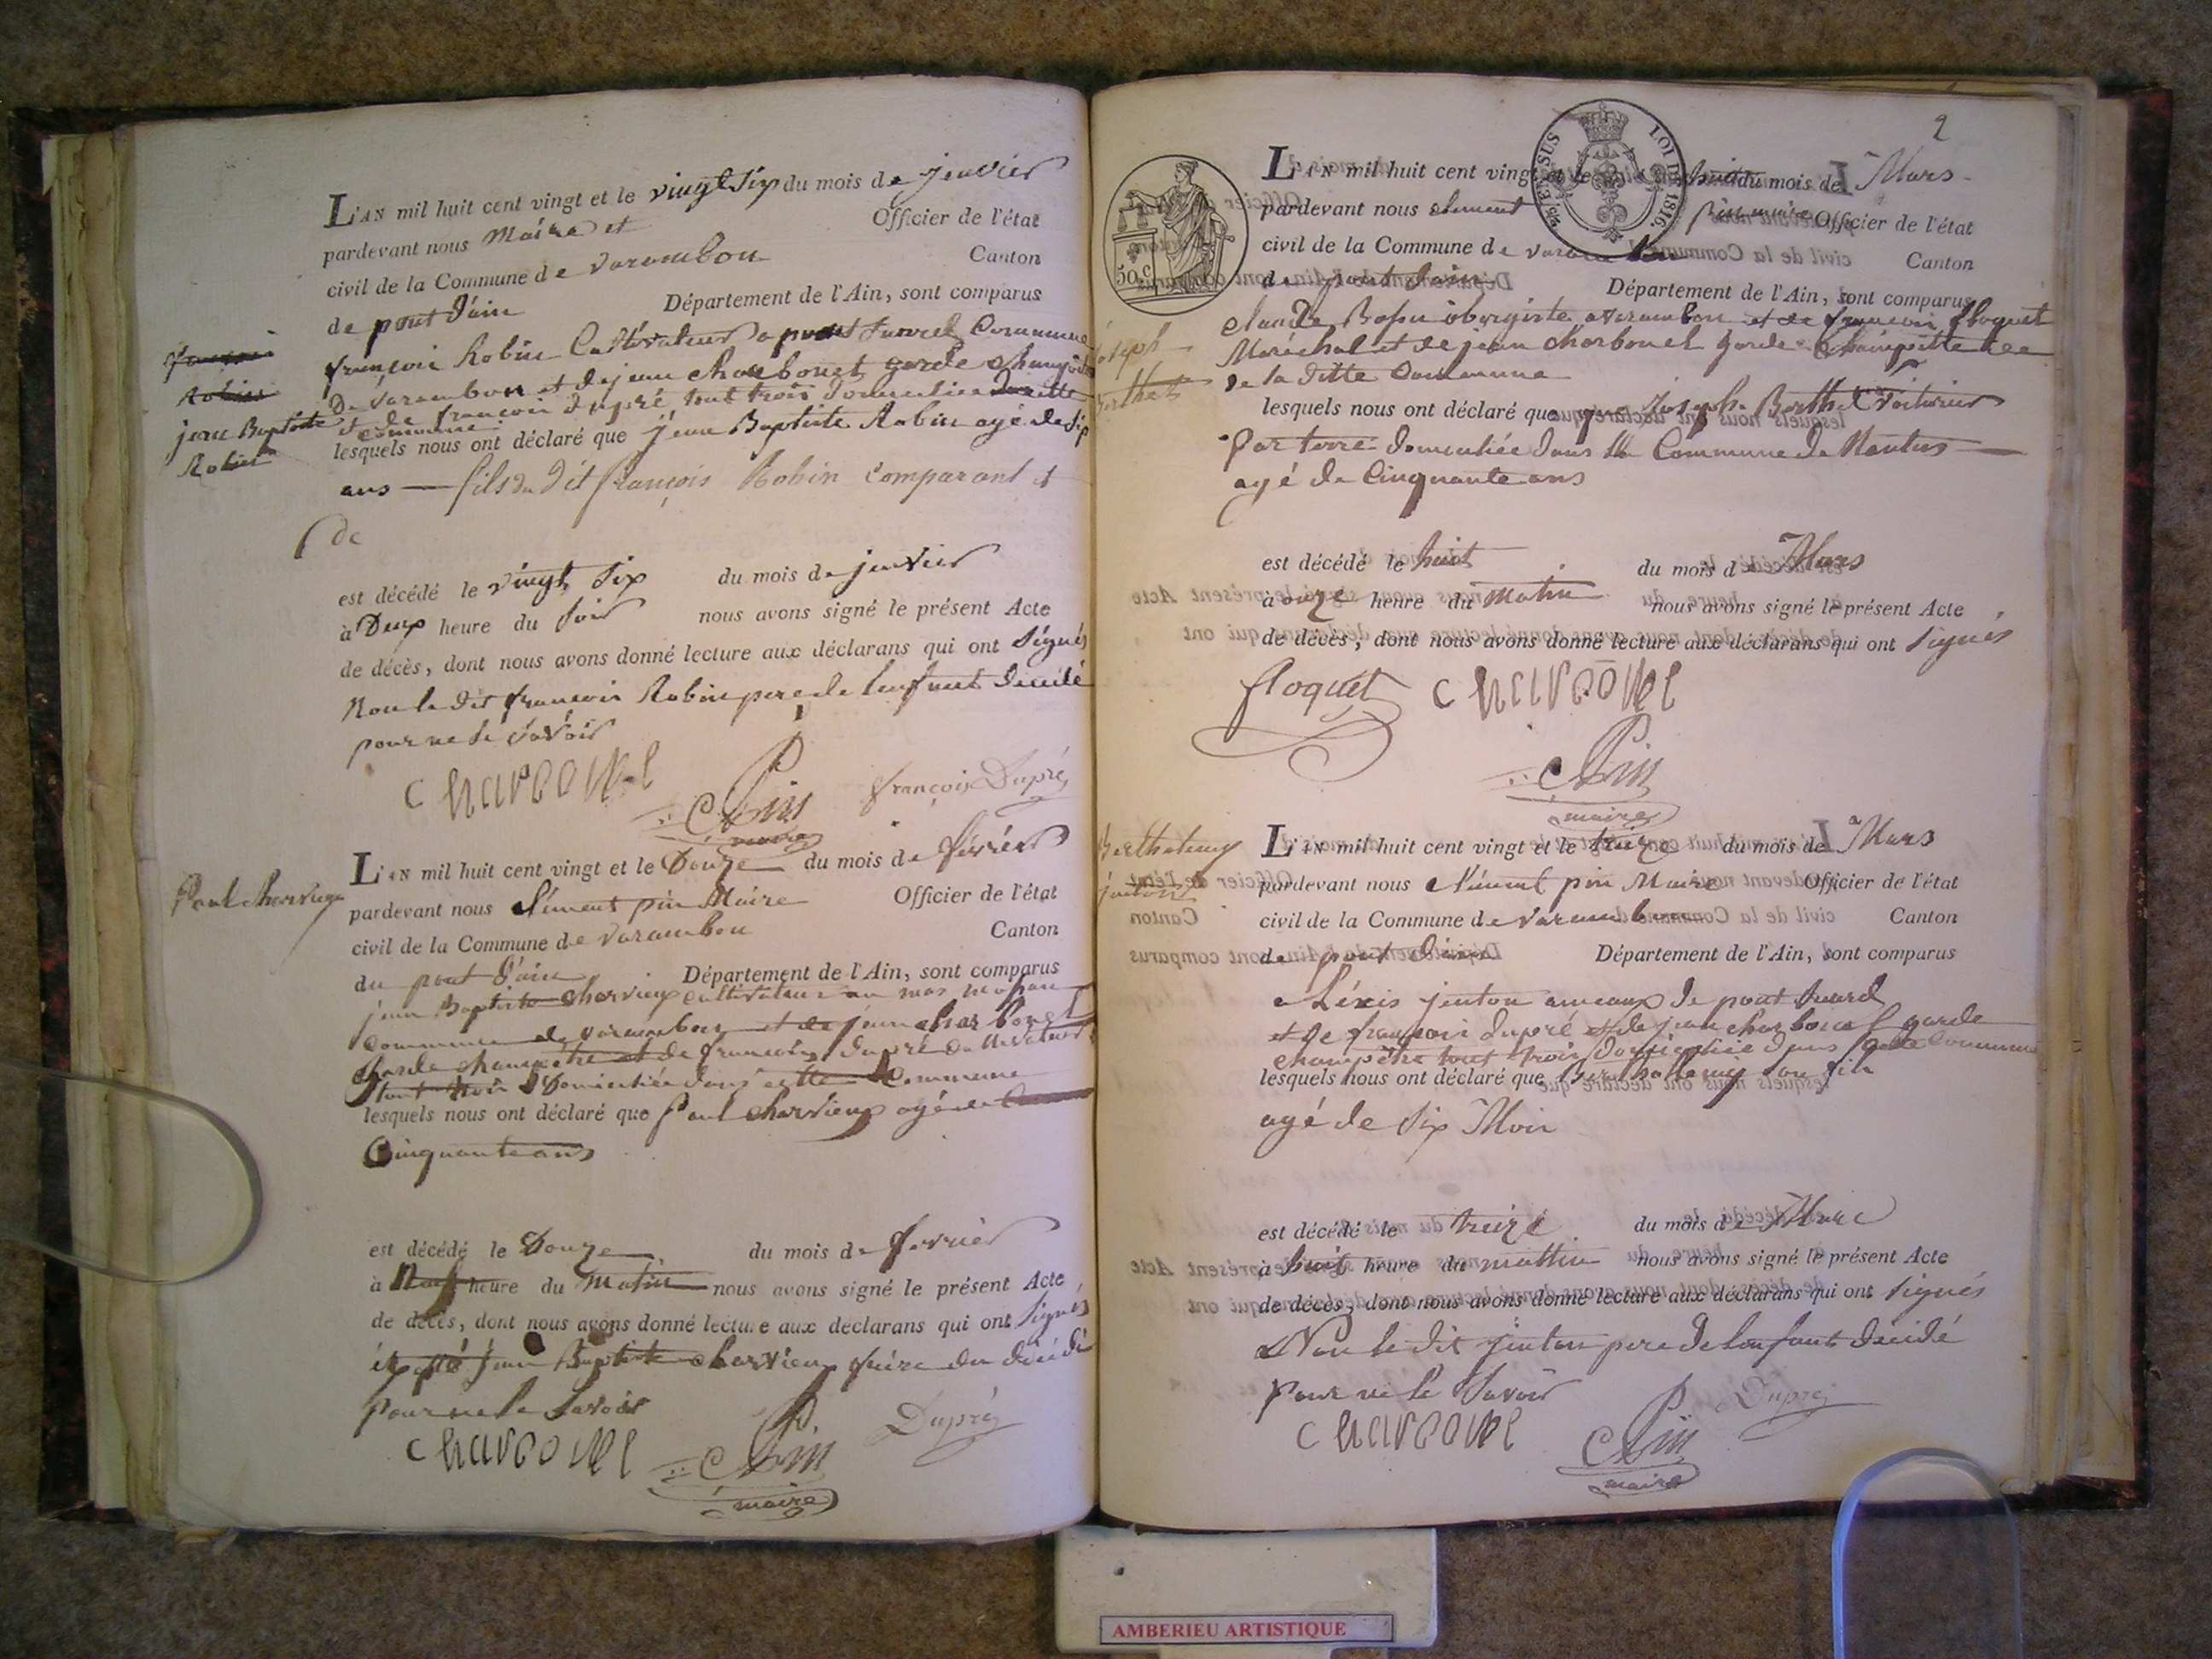 L'AN mil huit cent vingt et le vingt six du mois de jenvier
pardevant nous Maire et Officier de l'état
civil de la Commune de varambon Canton
de pont d'ain Département de l'Ain, sont comparus
françois Robin Cultivateur a pont Commune
de varambon et de jean charbonet garde champêtre
et de francois dupré tout trois domicilies
commune
lesquels nous ont déclaré que jean Baptiste Robin agé de six
ans — fils du dit françois Robin Comparant et
de
françois
Robin
jean Baptiste
Robin
est décédé le vingt six du mois de jenvier
à Deux heure du soir nous avons signé le présent Acte
de décès, dont nous avons donné lecture aux déclarans qui ont signés
Non le dit francois Robin pere de lenfant décédé
pour ne le savoir
charbonel
CPin
maire
françois Dupré
Paul chervieux
L'AN mil huit cent vingt et le Douze du mois de février
pardevant nous Clément pin Maire Officier de l'état
civil de la Commune de varambon Canton
du pont d'ain Département de l'Ain, sont comparus
jean Baptiste chervieux cultivateur au mas
Commune de varambon et de jean charbonel
garde champetre et de francois dupré cultivateur
tout trois Domiciliée dans cette Commune
lesquels nous ont déclaré que Paul chervieux agé de
Cinquante ans
est décédé le Douze du mois de fevrier
à Neuf heure du Matin nous avons signé le présent Acte
de décès, dont nous avons donné lecture aux déclarans qui ont signés
jean Baptiste chervieux frère du décédé
pour ne le savoir
charbonel
CPin
maire
Dupré
2
50 c
LOI DE 1816.
L'AN mil huit cent vingt et le huit du mois de Mars
pardevant nous clement pin maire Officier de l'état
civil de la Commune de varambon Canton
de pont dain Département de l'Ain, sont comparus
claude Bosu obergiste a varambon et de francois floquet
Maréchal et de jean charbonel garde champette
de la ditte Commune
joseph
Berthet
lesquels nous ont déclaré que Joseph Berthet voiturier
par terre domiciliée dans la Commune de Nantus
agé de Cinquante ans
est décédé le huit du mois de Mars
à onze heure du matin nous avons signé le présent Acte
de décès, dont nous avons donné lecture aux déclarans qui ont signés
floquet
charbonel
CPin
maire
Berthelemy
jenton
L'AN mil huit cent vingt et le treize du mois de Mars
pardevant nous Clément pin Maire Officier de l'état
civil de la Commune de varambon Canton
de pont dain Département de l'Ain, sont comparus
aléxis jenton
et de francois dupré et de jean charbonel garde
champétre tout trois domiciliée dans cette Commune
lesquels nous ont déclaré que Berthellemy son fils
agé de six Mois
est décédé le treize du mois de Mars
à huit heure du mattin nous avons signé le présent Acte
de décès, dont nous avons donné lecture aux déclarans qui ont signés
Non le dit jenton pere de lenfant décédé
pour ne le savoir
charbonel
CPin
maire
Dupré
AMBERIEU ARTISTIQUE